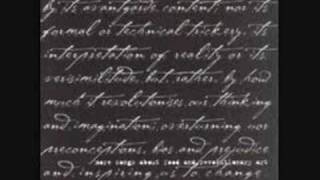 by its avantgarde content, nor its
formal or technical trickery, its
interpretation of reality or its
verisimilitude, but, rather, by how
much it revolutionises our thinking
and imagination, overturning our
preconceptions, bias and prejudice
more songs about food and revolutionary art
and inspiring us to change